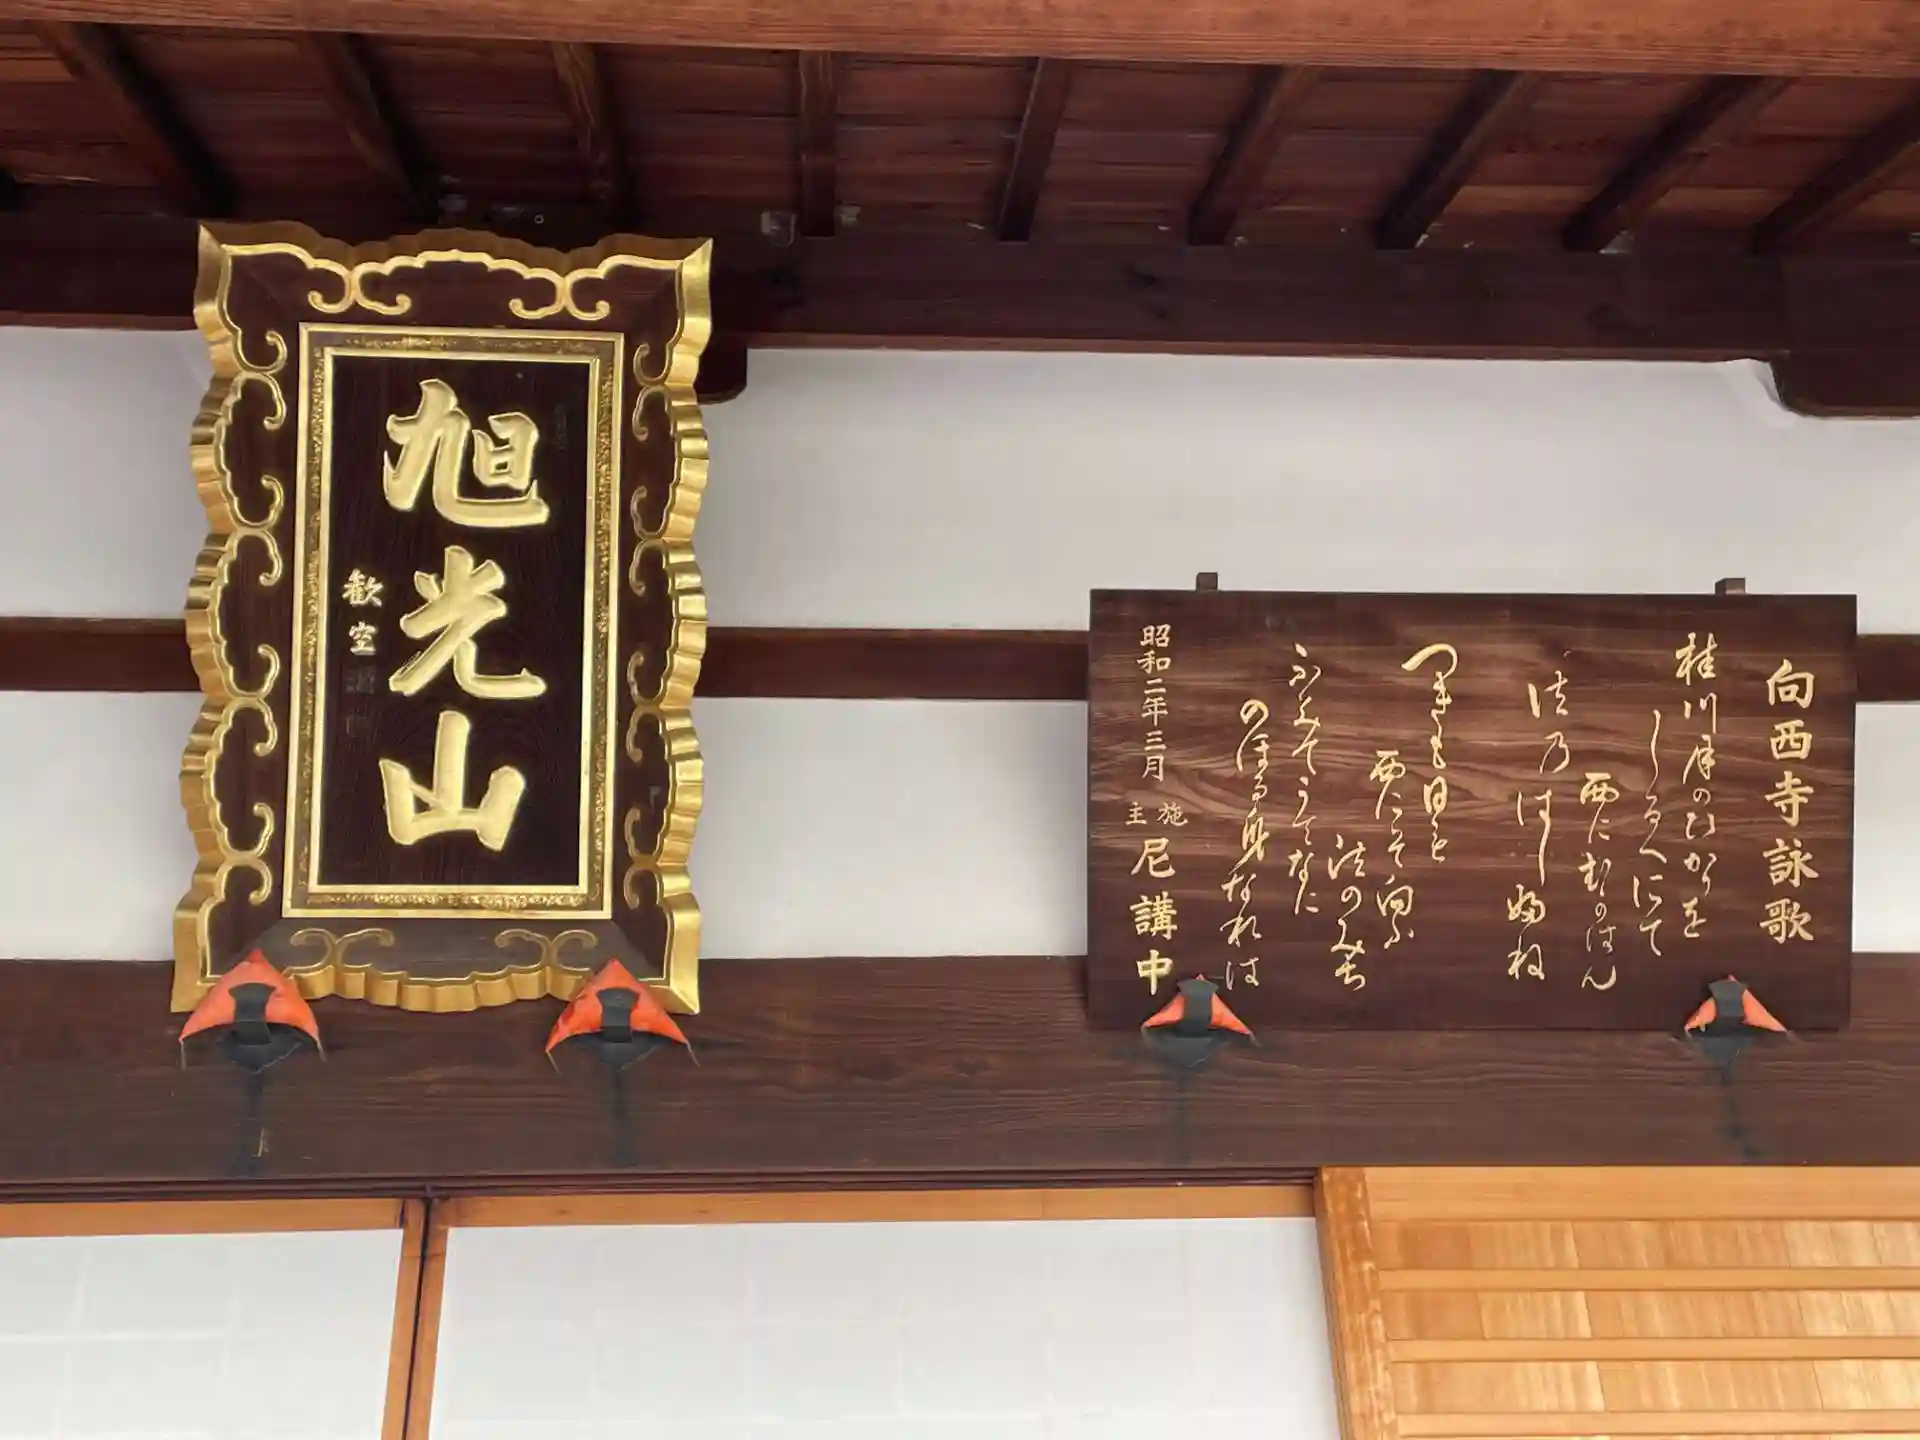 旭光山
歓空
向西寺詠歌
桂川月のひかりを
しるへにて
西にむかはん
法乃はし婦ね
つきも日も
西にこそ向へ
法のみち
ふみてうてなに
のほる身なれは
昭和二年三月
施主
尼講中